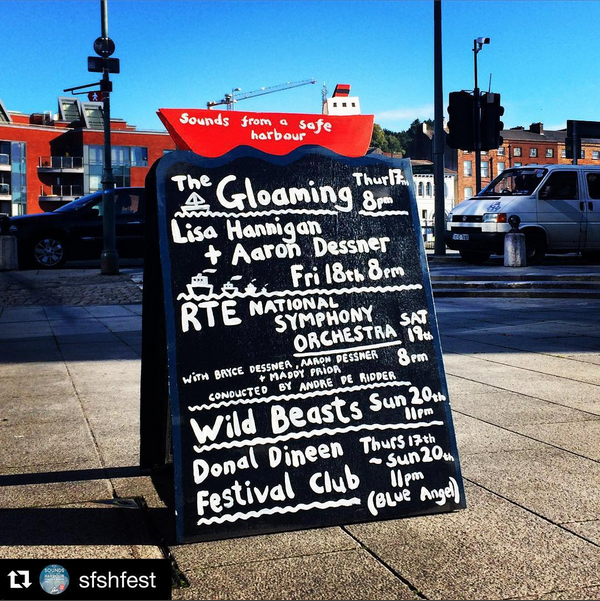 Sounds from a safe
harbour
The Gloaming Thur 17th
8pm
Lisa Hannigan
+ Aaron Dessner
Fri 18th 8pm
RTE NATIONAL
SYMPHONY
ORCHESTRA SAT
19th
8pm
WITH BRYCE DESSNER, AARON DESSNER
+ MADDY PRIOR
CONDUCTED BY ANDRE DE RIDDER
Wild Beasts Sun 20th
11pm
Donal Dineen Thurs 17th
~ Sun 20th
Festival Club 11pm
(Blue Angel)
sfshfest